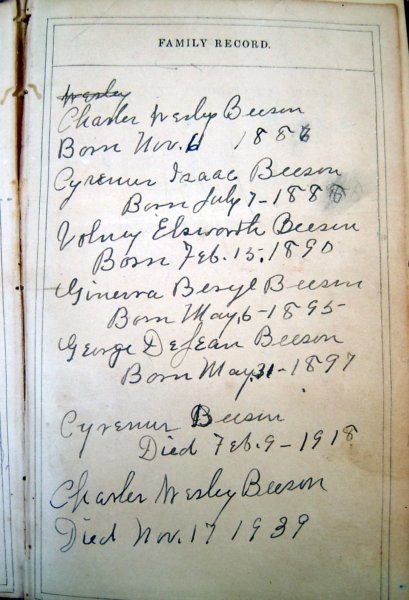 FAMILY RECORD.
Wesley
Charles Wesley Beeson
Born Nov. 6 1886
Cyrenus Isaac Beeson
Born July 7-1888
Volney Elsworth Beeson
Born Feb. 15, 1890
Ginevra Beryl Beeson
Born May, 6-1895-
George DeJean Beeson
Born May, 31-1897
Cyrenus Beeson
Died Feb. 9-1918
Charles Wesley Beeson
Died Nov. 17 1939